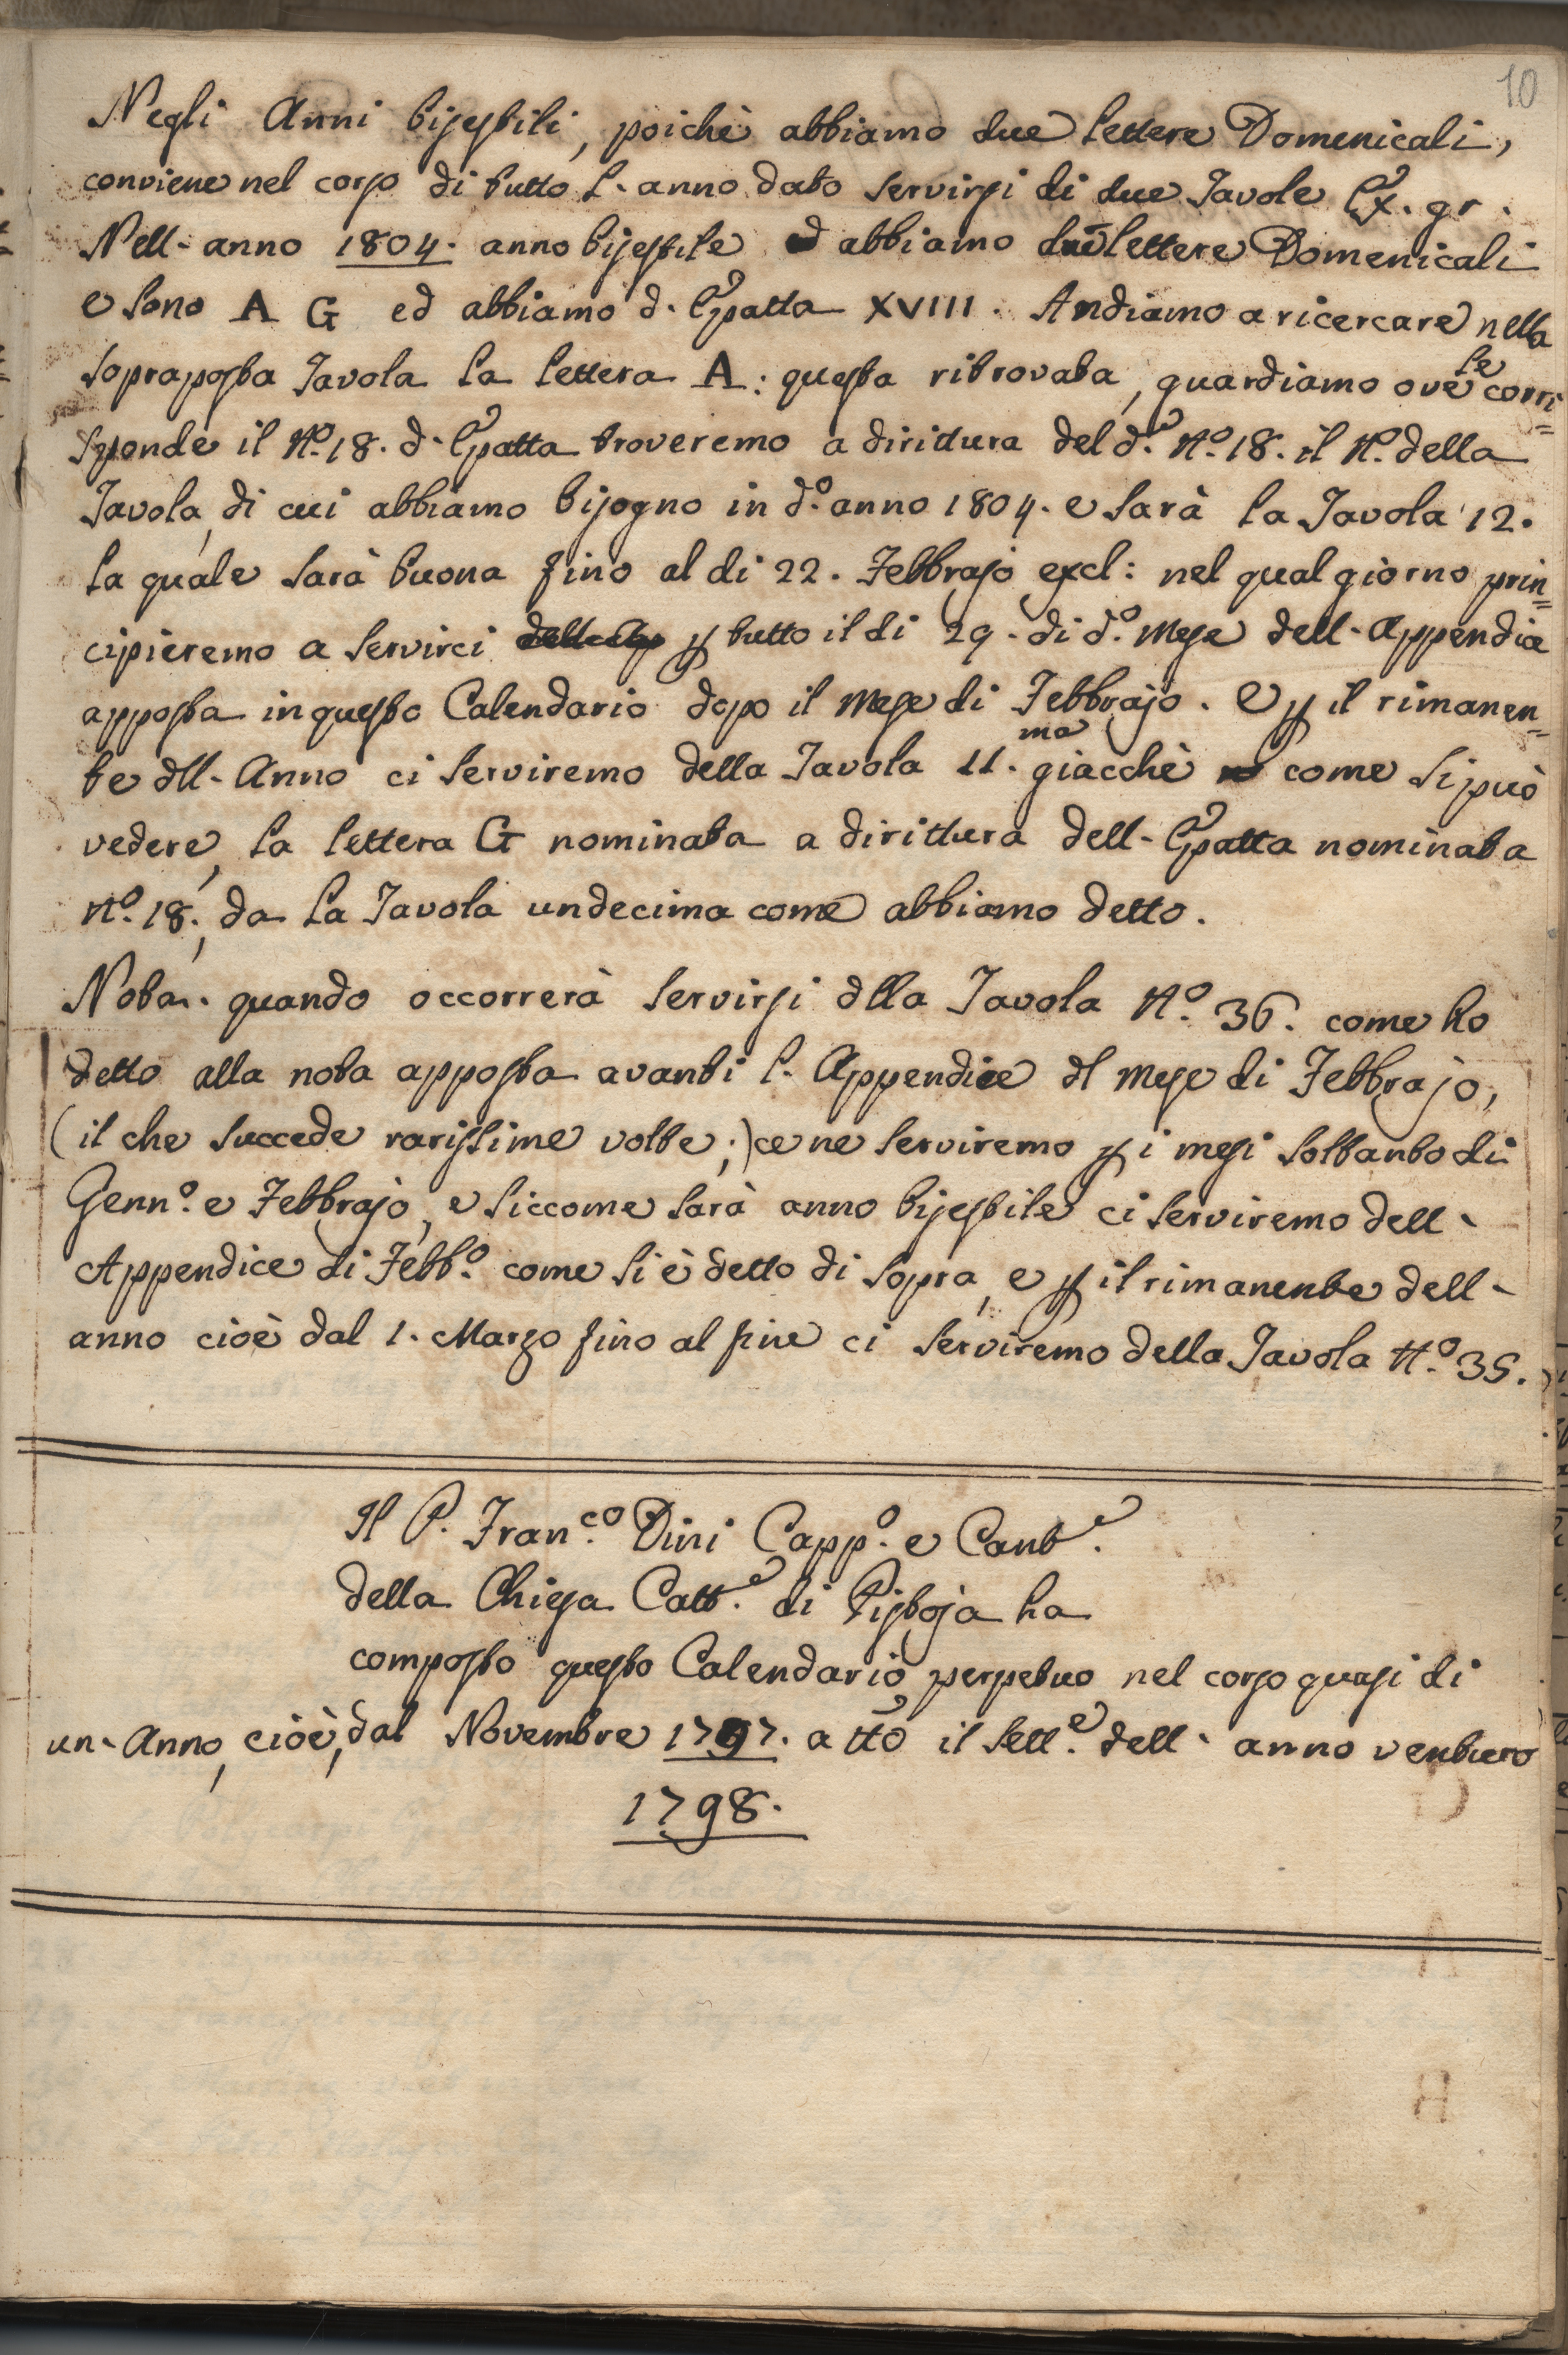 10
Negli Anni bisestili, poichè abbiamo due lettere Domenicali,
conviene nel corso di tutto l'anno dato servirsi di due Tavole Ex. gr.
Nell'anno 1804. anno bisestile abbiamo due lettere Domenicali
e sono A G ed abbiamo d'Epatta XVIII. Andiamo a ricercare nella
sopraposta Tavola la lettera A: questa ritrovata, guardiamo ove le corri=
sponde il N.º 18. d'Epatta troveremo a dirittura del d.º N.º 18. il N.º della
Tavola, di cui abbiamo bisogno in d.º anno 1804. e sarà la Tavola 12.
la quale sarà buona fino al di 22. Febbrajo excl: nel qual giorno prin=
cipieremo a servirci p tutto il di 29. di d.º Mese dell'Appendice
apposta in questo Calendario dopo il Mese di Febbrajo. E p il rimanen=
te dll'Anno ci serviremo della Tavola 11.ma giacchè come si può
vedere, la lettera G nominata a dirittura dell'Epatta nominata
N.º 18., da la Tavola undecima come abbiamo detto.
Nota. quando occorrerà servirsi dlla Tavola N.º 36. come ho
detto alla nota apposta avanti l'Appendice dl Mese di Febbrajo,
(il che succede rarissime volte;) ce ne serviremo p i mesi soltanto di
Genn.º e Febbrajo, e siccome sarà anno bisestile ci serviremo dell'
Appendice di Febb.º come si è detto di sopra, e p il rimanente dell'
anno cioè dal 1. Marzo fino al fine ci serviremo della Tavola N.º 35.
Il P. Fran.co Dini Capp.º e Cant.e
della Chiesa Catt.e di Pistoja ha
composto questo Calendario perpetuo nel corso quasi di
un'Anno, cioè, dal Novembre 1797. a tto il Sett.e dell'anno venturo
1798.